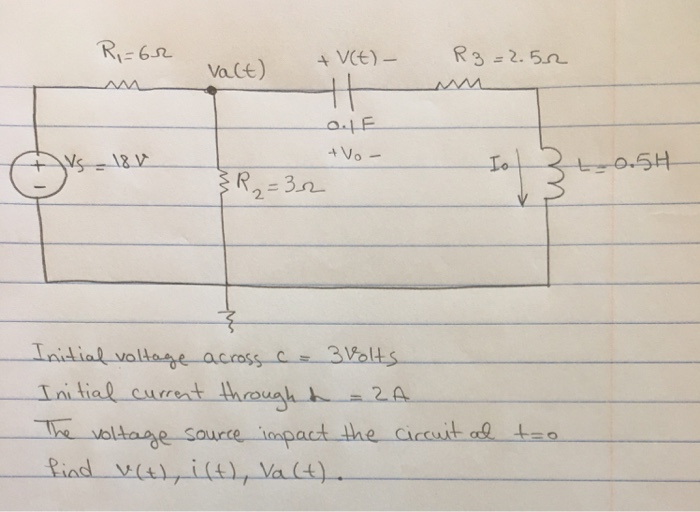 R₁=6Ω
Va(t)
+ V(t) −
R3 = 2.5Ω
0.1F
+ Vo −
+
−
Vs = 18 V
R₂=3Ω
Io
L=0.5H
Initial voltage across c = 3Volts
Initial current through L = 2A
The voltage source impact the circuit at t=0
find v(t), i(t), Va(t).